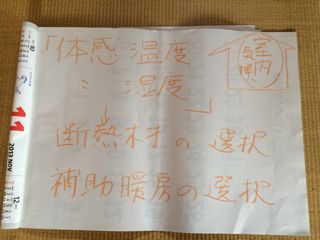 「体感温度
：湿度
」
室内
気候
断熱材の選択
補助暖房の選択
11
2013 NOV
10
12